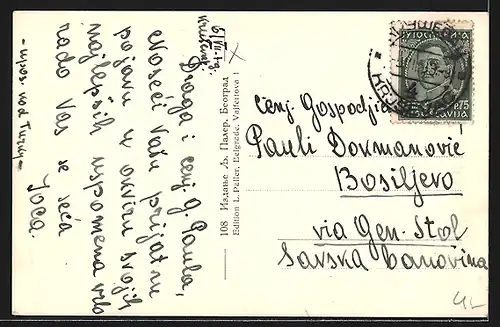 6/VII-34.
Kruševac
Draga i cenj. g. Paula,
Noseći Vašu prijatnu
pojavu u okviru svojih
najlepših uspomena vrlo
rado Vas se seća
Joca.
108 Издање Љ. Палер, Београд
Edition L. Paller, Belgrade, Vajfertova 1
ЈУГОСЛАВИЈА
0.75
JUGOSLAVIJA
Cenj. Gospodjica
Pauli Dokmanović
Bosiljevo
via Gen. Stol
Savska banovina